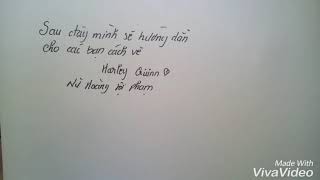 Sau đây mình sẽ hướng dẫn
cho các bạn cách vẽ
Harley Quinn
Nữ Hoàng tội phạm
Made With
VivaVideo